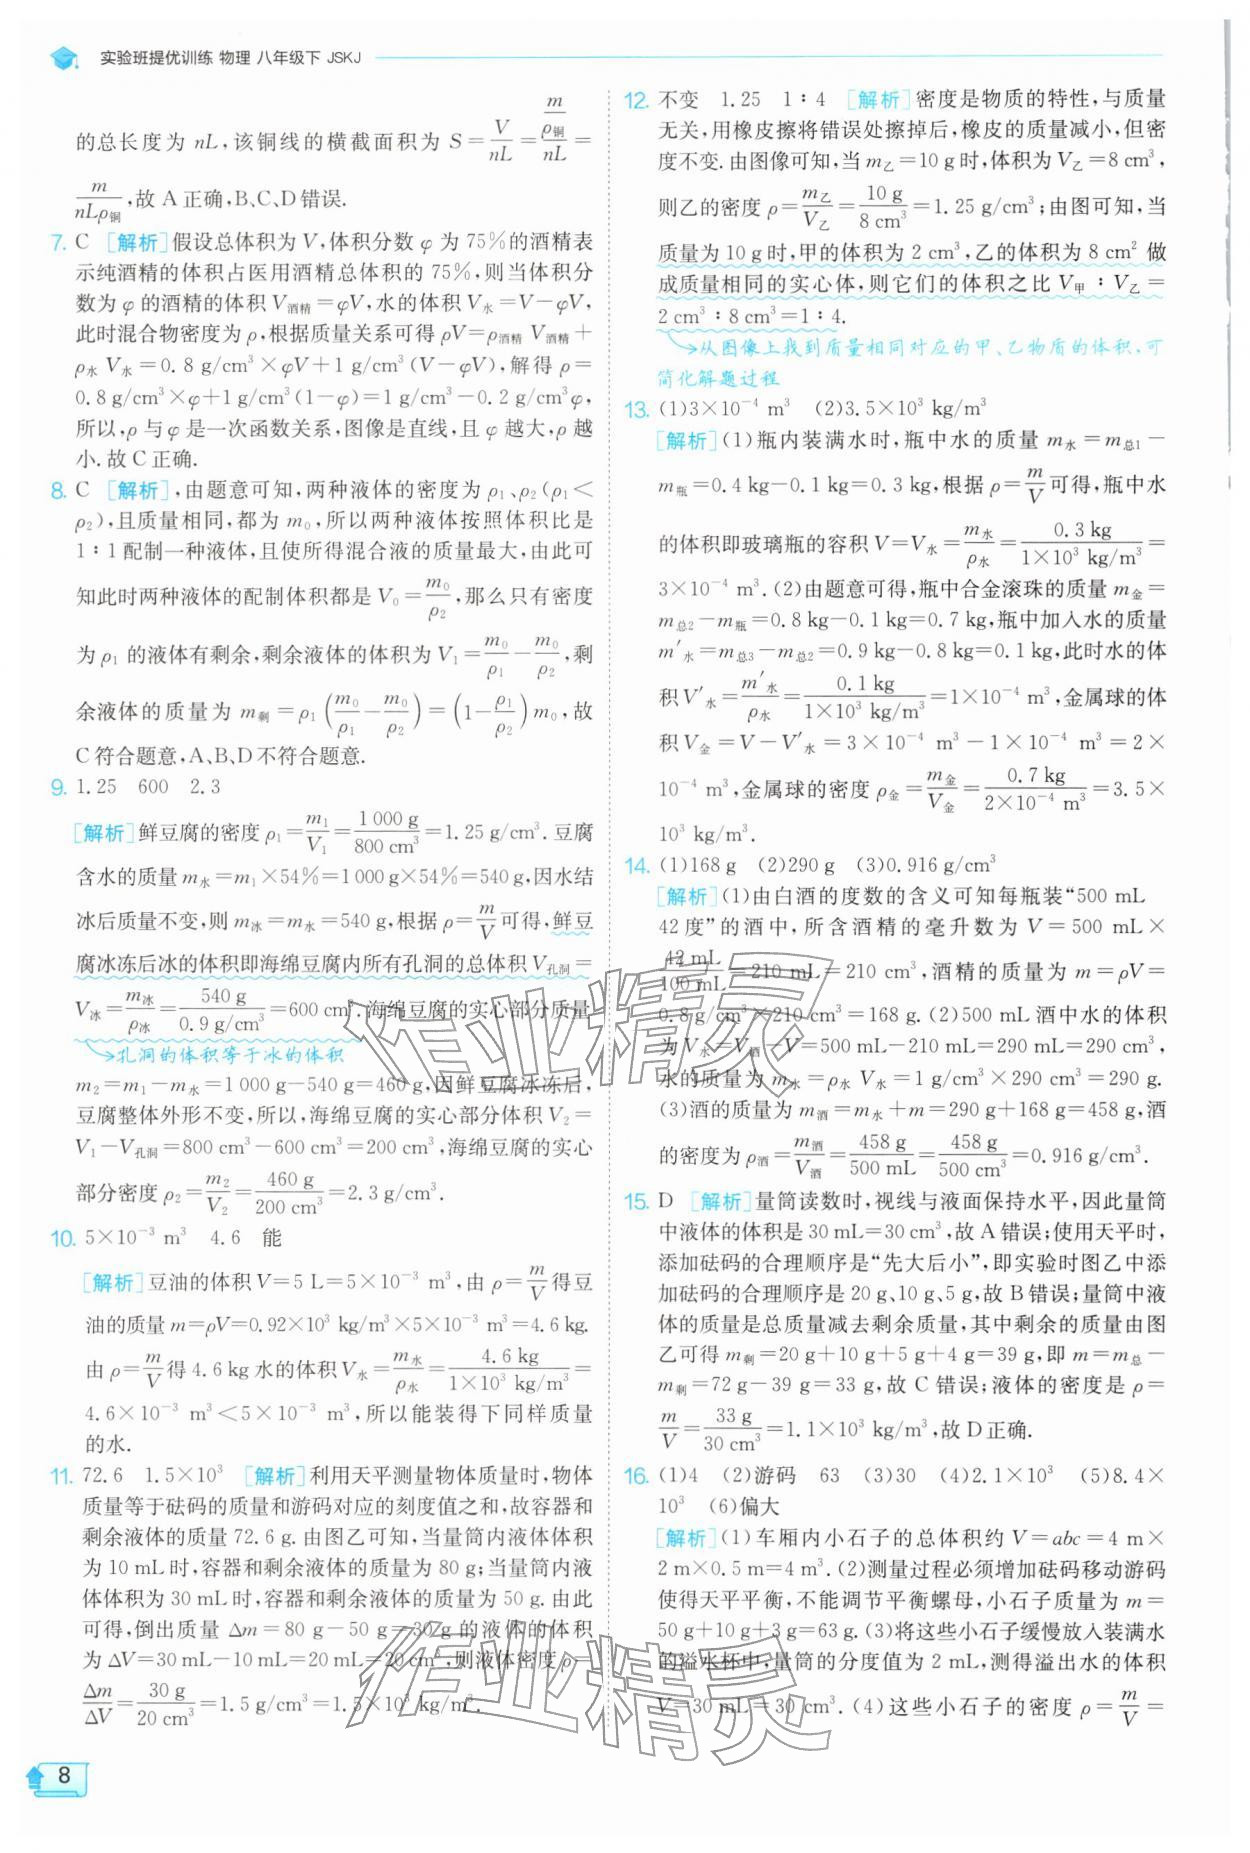 实验班提优训练 物理 八年级下 JSKJ
的总长度为 nL,该铜线的横截面积为 S=V/nL=(m/ρ铜)/nL=
m/nLρ铜,故 A 正确,B、C、D 错误.
7. C [解析]假设总体积为 V,体积分数 φ 为 75%的酒精表
示纯酒精的体积占医用酒精总体积的 75%,则当体积分
数为 φ 的酒精的体积 V酒精=φV,水的体积 V水=V-φV,
此时混合物密度为 ρ,根据质量关系可得 ρV=ρ酒精 V酒精+
ρ水 V水=0.8 g/cm³×φV+1 g/cm³(V-φV),解得 ρ=
0.8 g/cm³×φ+1 g/cm³(1-φ)=1 g/cm³-0.2 g/cm³φ,
所以,ρ 与 φ 是一次函数关系,图像是直线,且 φ 越大,ρ 越
小.故 C 正确.
8. C [解析],由题意可知,两种液体的密度为 ρ₁、ρ₂(ρ₁<
ρ₂),且质量相同,都为 m₀,所以两种液体按照体积比是
1∶1配制一种液体,且使所得混合液的质量最大,由此可
知此时两种液体的配制体积都是 V₀=m₀/ρ₂,那么只有密度
为 ρ₁ 的液体有剩余,剩余液体的体积为 V₁=m₀/ρ₁-m₀/ρ₂,剩
余液体的质量为 m剩=ρ₁(m₀/ρ₁-m₀/ρ₂)=(1-ρ₁/ρ₂)m₀,故
C 符合题意,A、B、D 不符合题意.
9. 1.25 600 2.3
[解析]鲜豆腐的密度 ρ₁=m₁/V₁=1 000 g/800 cm³=1.25 g/cm³.豆腐
含水的质量 m水=m₁×54%=1 000 g×54%=540 g,因水结
冰后质量不变,则 m冰=m水=540 g,根据 ρ=m/V可得,鲜豆
腐冰冻后冰的体积即海绵豆腐内所有孔洞的总体积 V孔洞=
V冰=m冰/ρ冰=540 g/0.9 g/cm³=600 cm³.海绵豆腐的实心部分质量
孔洞的体积等于冰的体积
m₂=m₁-m水=1 000 g-540 g=460 g,因鲜豆腐冰冻后,
豆腐整体外形不变,所以,海绵豆腐的实心部分体积 V₂=
V₁-V孔洞=800 cm³-600 cm³=200 cm³,海绵豆腐的实心
部分密度 ρ₂=m₂/V₂=460 g/200 cm³=2.3 g/cm³.
10. 5×10⁻³ m³ 4.6 能
[解析]豆油的体积 V=5 L=5×10⁻³ m³,由 ρ=m/V得豆
油的质量 m=ρV=0.92×10³ kg/m³×5×10⁻³ m³=4.6 kg.
由 ρ=m/V得 4.6 kg 水的体积 V水=m水/ρ水=4.6 kg/1×10³ kg/m³=
4.6×10⁻³ m³<5×10⁻³ m³,所以能装得下同样质量
的水.
11. 72.6 1.5×10³ [解析]利用天平测量物体质量时,物体
质量等于砝码的质量和游码对应的刻度值之和,故容器和
剩余液体的质量 72.6 g.由图乙可知,当量筒内液体体积
为 10 mL 时,容器和剩余液体的质量为 80 g;当量筒内液
体体积为 30 mL 时,容器和剩余液体的质量为 50 g.由此
可得,倒出质量 Δm=80 g-50 g=30 g 的液体的体积
为 ΔV=30 mL-10 mL=20 mL=20 cm³,则液体密度 ρ=
Δm/ΔV=30 g/20 cm³=1.5 g/cm³=1.5×10³ kg/m³.
8
12. 不变 1.25 1∶4 [解析]密度是物质的特性,与质量
无关,用橡皮擦将错误处擦掉后,橡皮的质量减小,但密
度不变.由图像可知,当 m乙=10 g 时,体积为 V乙=8 cm³,
则乙的密度 ρ=m乙/V乙=10 g/8 cm³=1.25 g/cm³;由图可知,当
质量为 10 g 时,甲的体积为 2 cm³,乙的体积为 8 cm² 做
成质量相同的实心体,则它们的体积之比 V甲∶V乙=
2 cm³∶8 cm³=1∶4.
从图像上找到质量相同对应的甲、乙物质的体积,可
简化解题过程
13. (1)3×10⁻⁴ m³ (2)3.5×10³ kg/m³
[解析](1)瓶内装满水时,瓶中水的质量 m水=m总1-
m瓶=0.4 kg-0.1 kg=0.3 kg,根据 ρ=m/V可得,瓶中水
的体积即玻璃瓶的容积 V=V水=m水/ρ水=0.3 kg/1×10³ kg/m³=
3×10⁻⁴ m³.(2)由题意可得,瓶中合金滚珠的质量 m金=
m总2-m瓶=0.8 kg-0.1 kg=0.7 kg,瓶中加入水的质量
m′水=m总3-m总2=0.9 kg-0.8 kg=0.1 kg,此时水的体
积 V′水=m′水/ρ水=0.1 kg/1×10³ kg/m³=1×10⁻⁴ m³,金属球的体
积 V金=V-V′水=3×10⁻⁴ m³-1×10⁻⁴ m³=2×
10⁻⁴ m³,金属球的密度 ρ金=m金/V金=0.7 kg/2×10⁻⁴ m³=3.5×
10³ kg/m³.
14. (1)168 g (2)290 g (3)0.916 g/cm³
[解析](1)由白酒的度数的含义可知每瓶装“500 mL
42度”的酒中,所含酒精的毫升数为 V=500 mL×
42 mL/100 mL=210 mL=210 cm³,酒精的质量为 m=ρV=
0.8 g/cm³×210 cm³=168 g.(2)500 mL 酒中水的体积
为 V水=V酒-V=500 mL-210 mL=290 mL=290 cm³,
水的质量为 m水=ρ水 V水=1 g/cm³×290 cm³=290 g.
(3)酒的质量为 m酒=m水+m=290 g+168 g=458 g,酒
的密度为 ρ酒=m酒/V酒=458 g/500 mL=458 g/500 cm³=0.916 g/cm³.
15. D [解析]量筒读数时,视线与液面保持水平,因此量筒
中液体的体积是 30 mL=30 cm³,故 A 错误;使用天平时,
添加砝码的合理顺序是“先大后小”,即实验时图乙中添
加砝码的合理顺序是 20 g、10 g、5 g,故 B 错误;量筒中液
体的质量是总质量减去剩余质量,其中剩余的质量由图
乙可得 m剩=20 g+10 g+5 g+4 g=39 g,即 m=m总-
m剩=72 g-39 g=33 g,故 C 错误;液体的密度是 ρ=
m/V=33 g/30 cm³=1.1×10³ kg/m³,故 D 正确.
16. (1)4 (2)游码 63 (3)30 (4)2.1×10³ (5)8.4×
10³ (6)偏大
[解析](1)车厢内小石子的总体积约 V=abc=4 m×
2 m×0.5 m=4 m³.(2)测量过程必须增加砝码移动游码
使得天平平衡,不能调节平衡螺母,小石子质量为 m=
50 g+10 g+3 g=63 g.(3)将这些小石子缓慢放入装满水
的溢水杯中,量筒的分度值为 2 mL,测得溢出水的体积
V=30 mL=30 cm³.(4)这些小石子的密度 ρ=m/V=
作业精灵
作业精灵